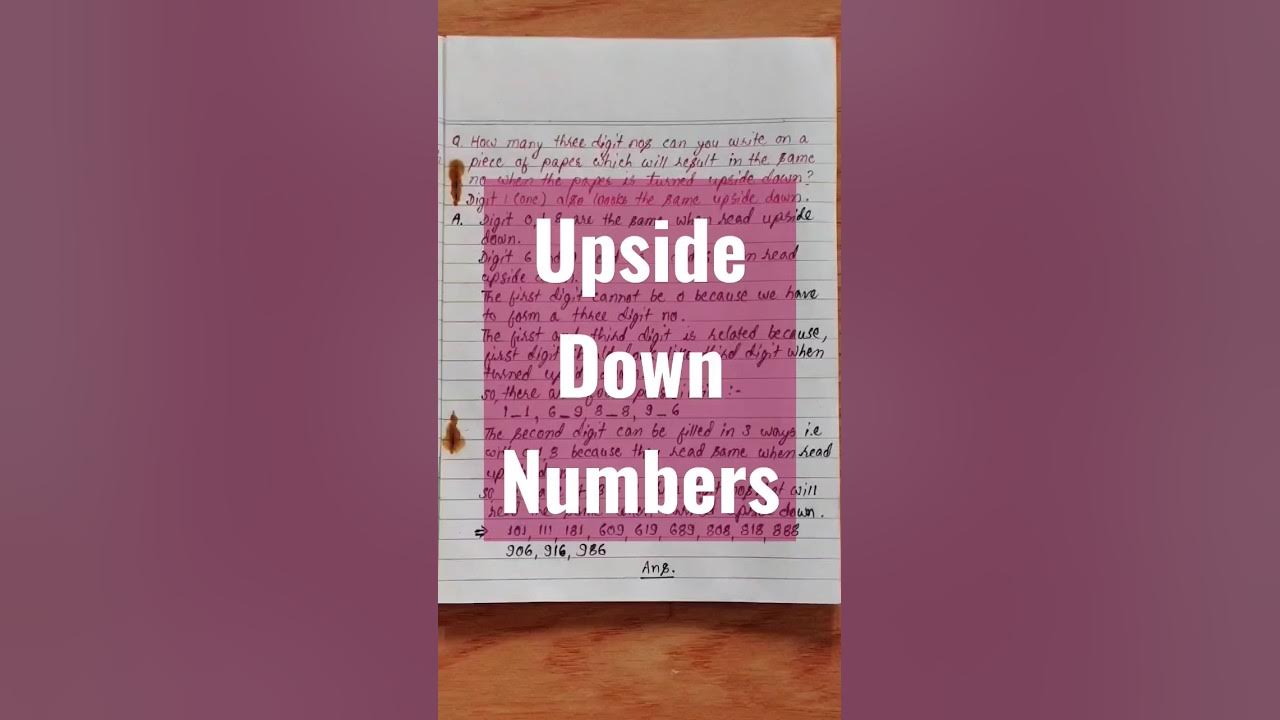 Q. How many three digit nos can you write on a
piece of paper which will result in the same
no when the paper is turned upside down?
Digit 1 (one) also looks the same upside down.
A. Digit 0, 1, 8 are the same when read upside
down.
Digit 6 read
upside
The first digit cannot be 0 because we have
to form a three digit no.
The first and third digit is related because,
first digit third digit when
turned
so, there :-
1_1, 6_9, 8_8, 9_6
The second digit can be filled in 3 ways i.e
8 because they read same when read
so, will
down.
⇒ 101, 111, 181, 609, 619, 689, 808, 818, 888
906, 916, 986
Ans.
Upside
Down
Numbers